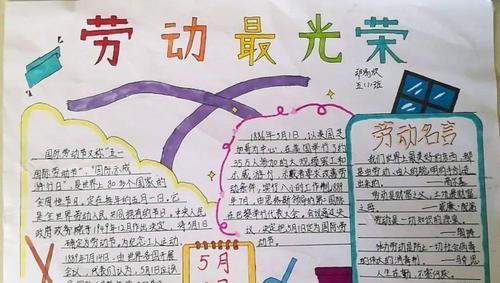 劳动最光荣
五(1)班
国际劳动节又称"五一
国际劳动节"、"国际示威
游行日",是世界上80多个国家的
全国性节日。定在每年的五月一日。它
是全世界劳动人民共同拥有的节日。中央人民
政府政务院于1949年12月作出决定,将5月1
日确定为劳动节,为纪念工人运动,
1889年7月14日,由世界各国
会议,代表们认为,5月1日应该
1886年5月1日,以美国芝
加哥为中心,在美国举行了约
35万人参加的大规模罢工和
示威游行,示威者要求改善劳
动条件,实行八小时工作制。1889
年7月,由恩格斯领导的第二国际
在巴黎举行代表大会。会议通过决
议,决定把5月1日定为国际劳
动节。
5月
劳动名言
我们世界上最美好的东西,都
是由劳动、由人的聪明的手创造
出来的。——高尔基
劳动是财富之父,土地是财富
之母。——威廉·配第
劳动是一切知识的源泉。
——陶铸
体力劳动是防止一切社会病毒
的伟大的消毒剂。——马克思
人生在勤,不索何获。